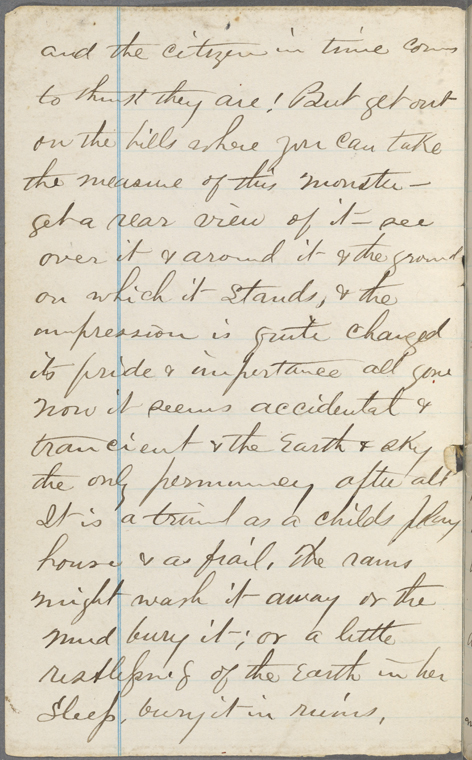 and the citizen in time coms
to think they are! But get out
on the hills where you can take
the measure of this monster —
get a rear view of it — see
over it & around it & the ground
on which it stands, & the
impression is quite changed
its pride & importance all gone
now it seems accidental &
trancient & the Earth & sky
the only permanency after all
It is a trivial as a childs play
house & as frail. The rains
might wash it away or the
mud bury it; or a little
restlessness of the Earth in her
sleep, bury it in ruins.